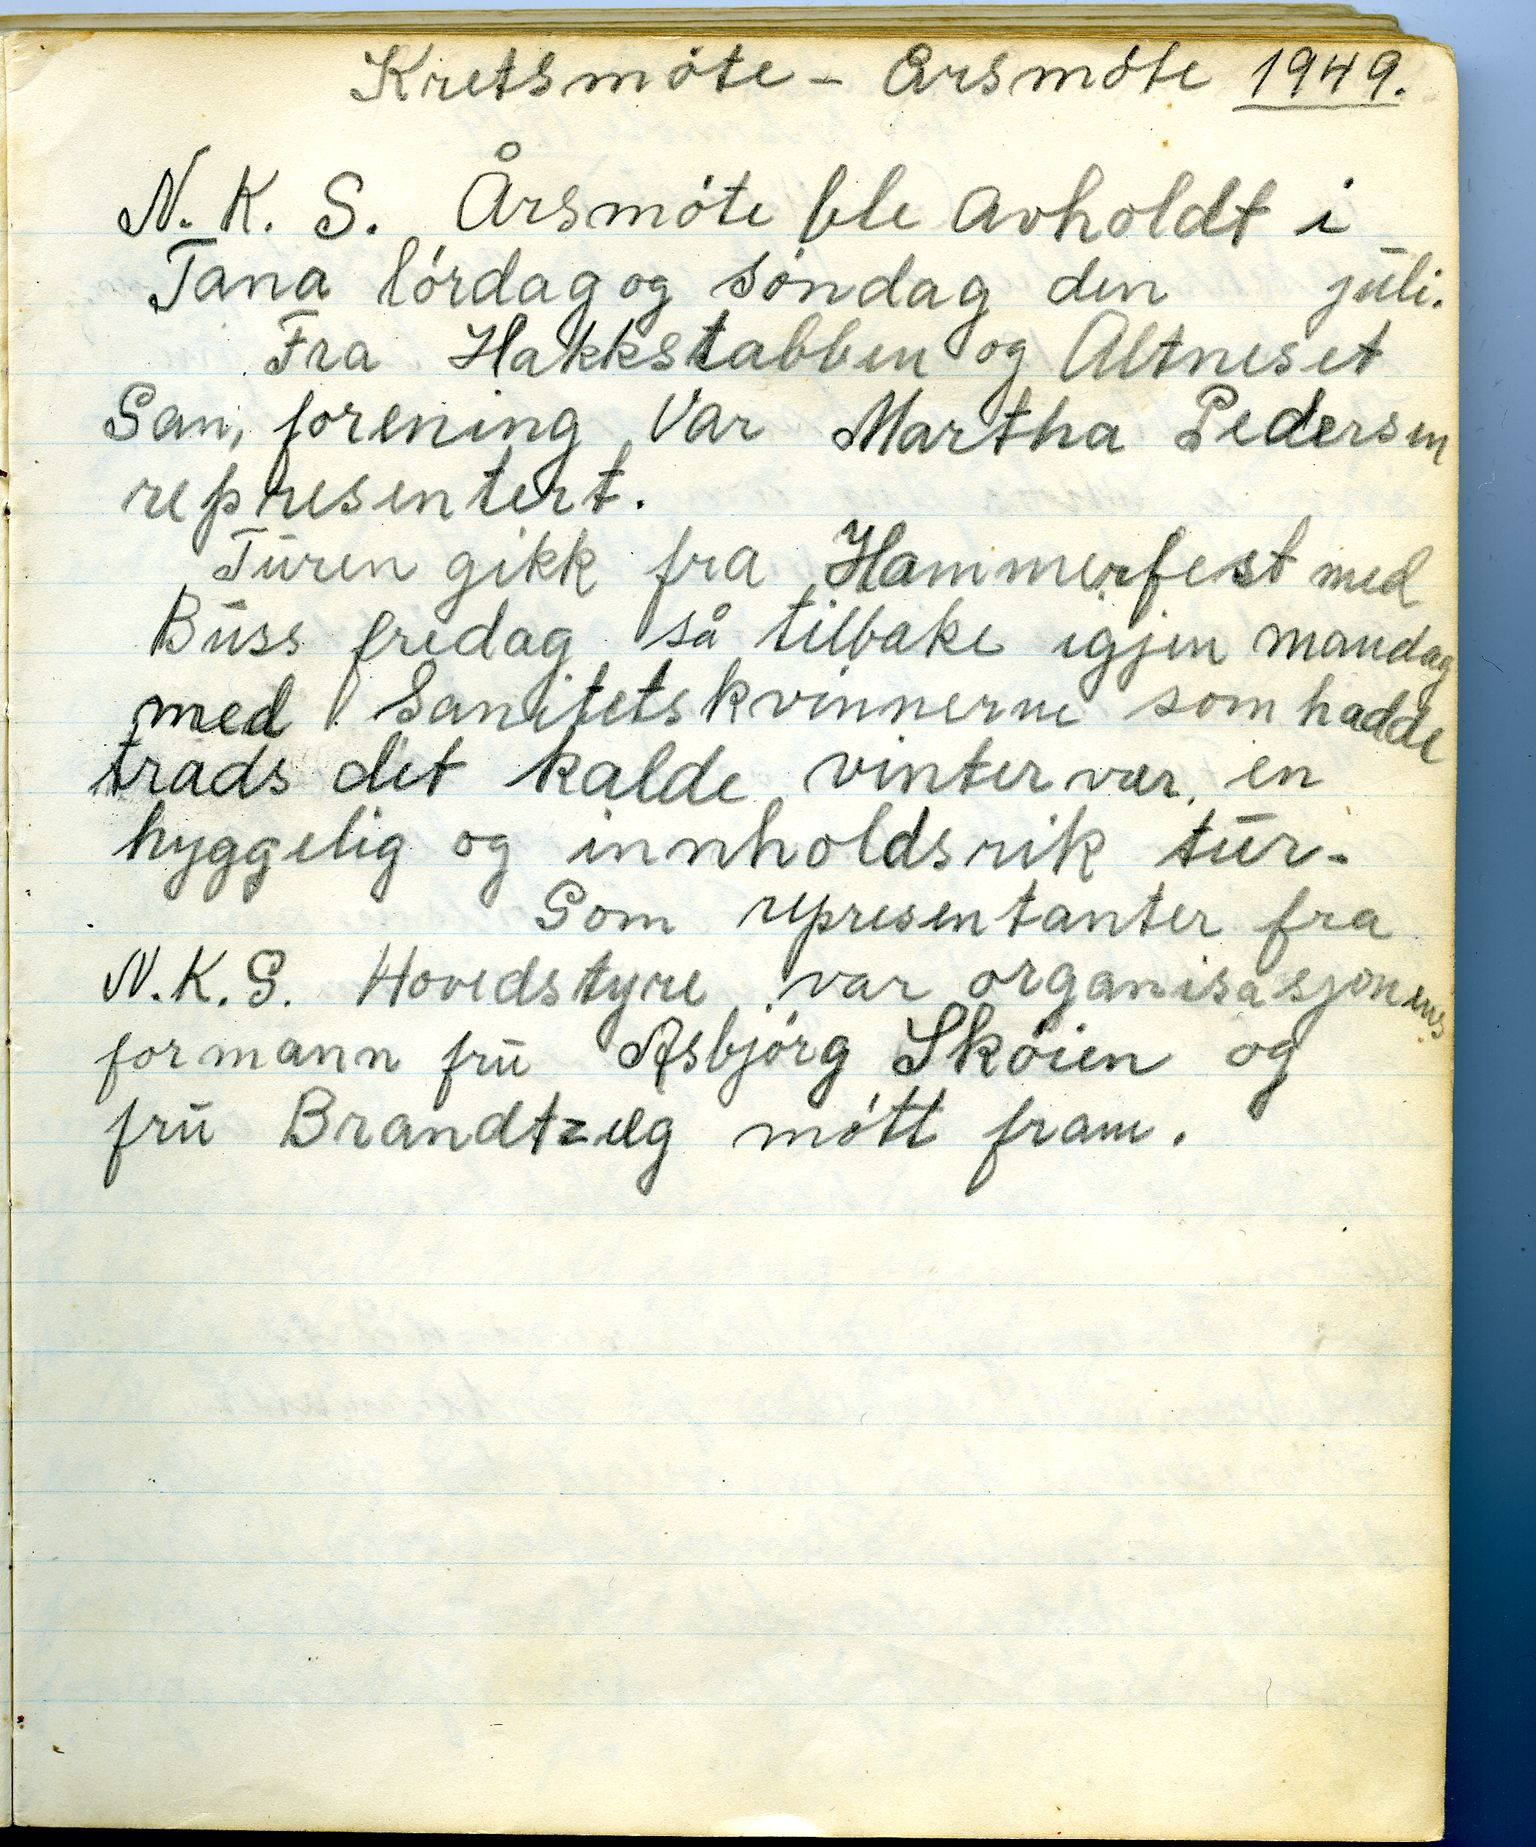 Kretsmöte - Årsmöte 1949.
N. K. S. Årsmöte ble avholdt i
Tana lördag og söndag den juli.
Fra Hakkstabben og Altneset
San, forening var Martha Pedersen
representert.
Turen gikk fra Hammerfest med
Buss fredag så tilbake igjen mandag
med Sanitetskvinnerne som hadde
trads det kalde vinter vær, en
hyggelig og innholdsrik tur.
Som representanter fra
N.K.S. Hovedstyre var organisasjonens
formann fru Asbjörg Sköien og
fru Brandtzæg mött fram.